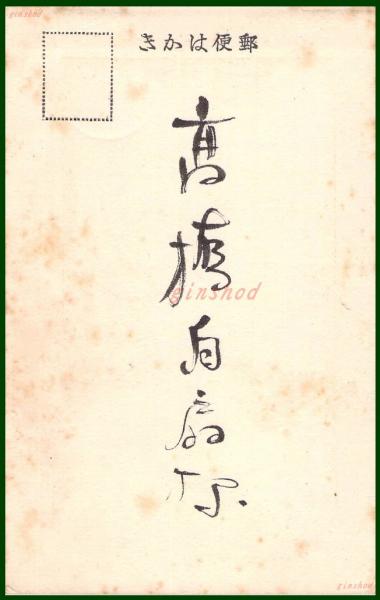 ginshod
きかは​便郵
高橋白扇様
ginshod
ginshod